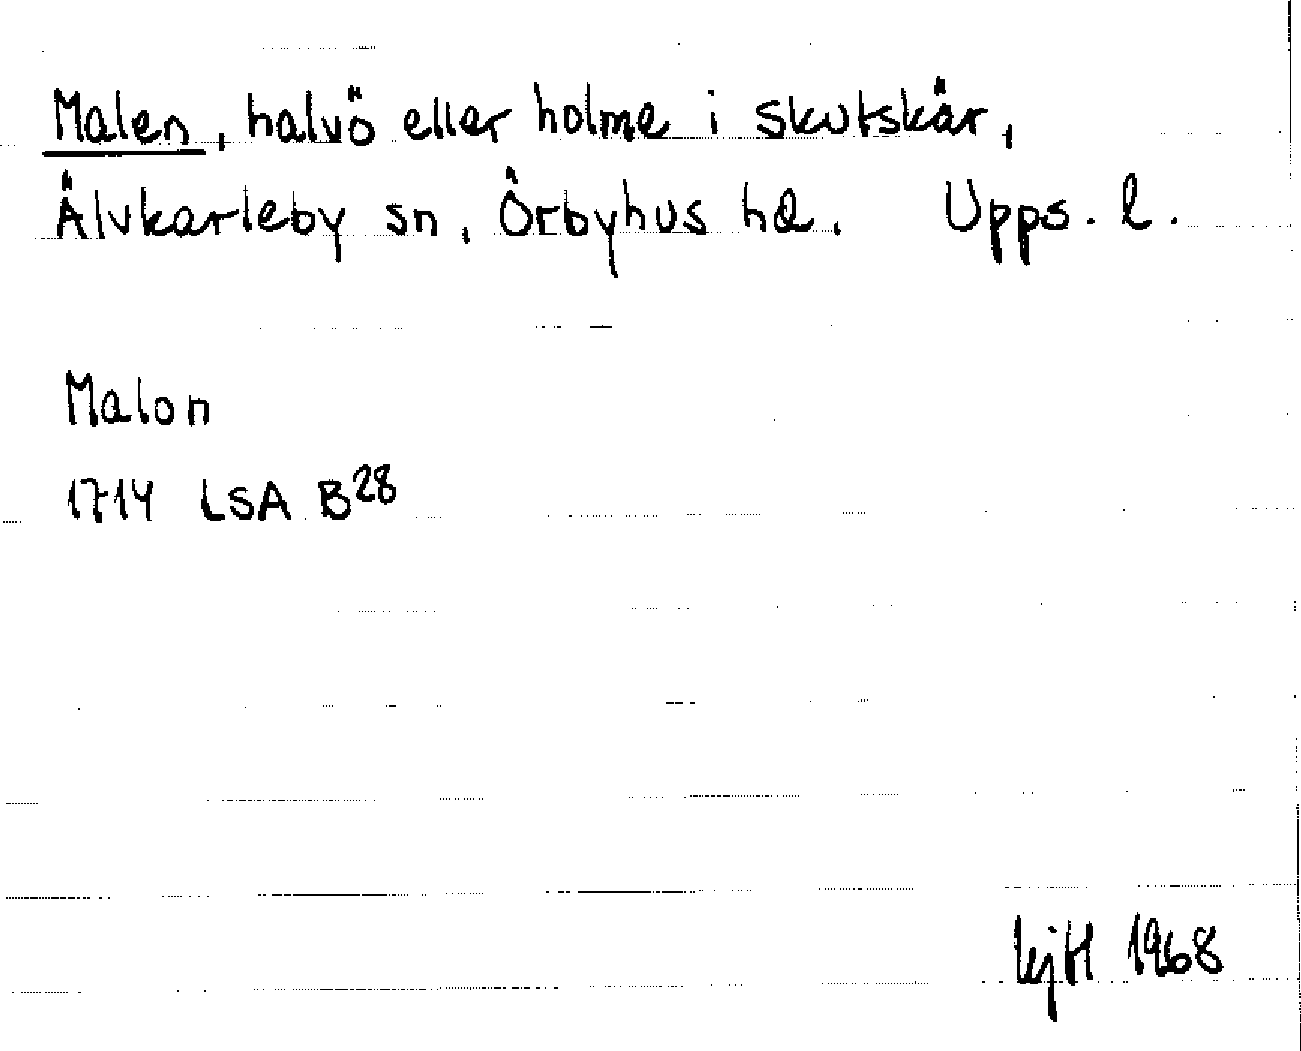 Malen, halvö eller holme i Skutskär,
Älvkarleby sn, Örbyhus hd. Upps. l.
Malon
1714 LSA B28
1968